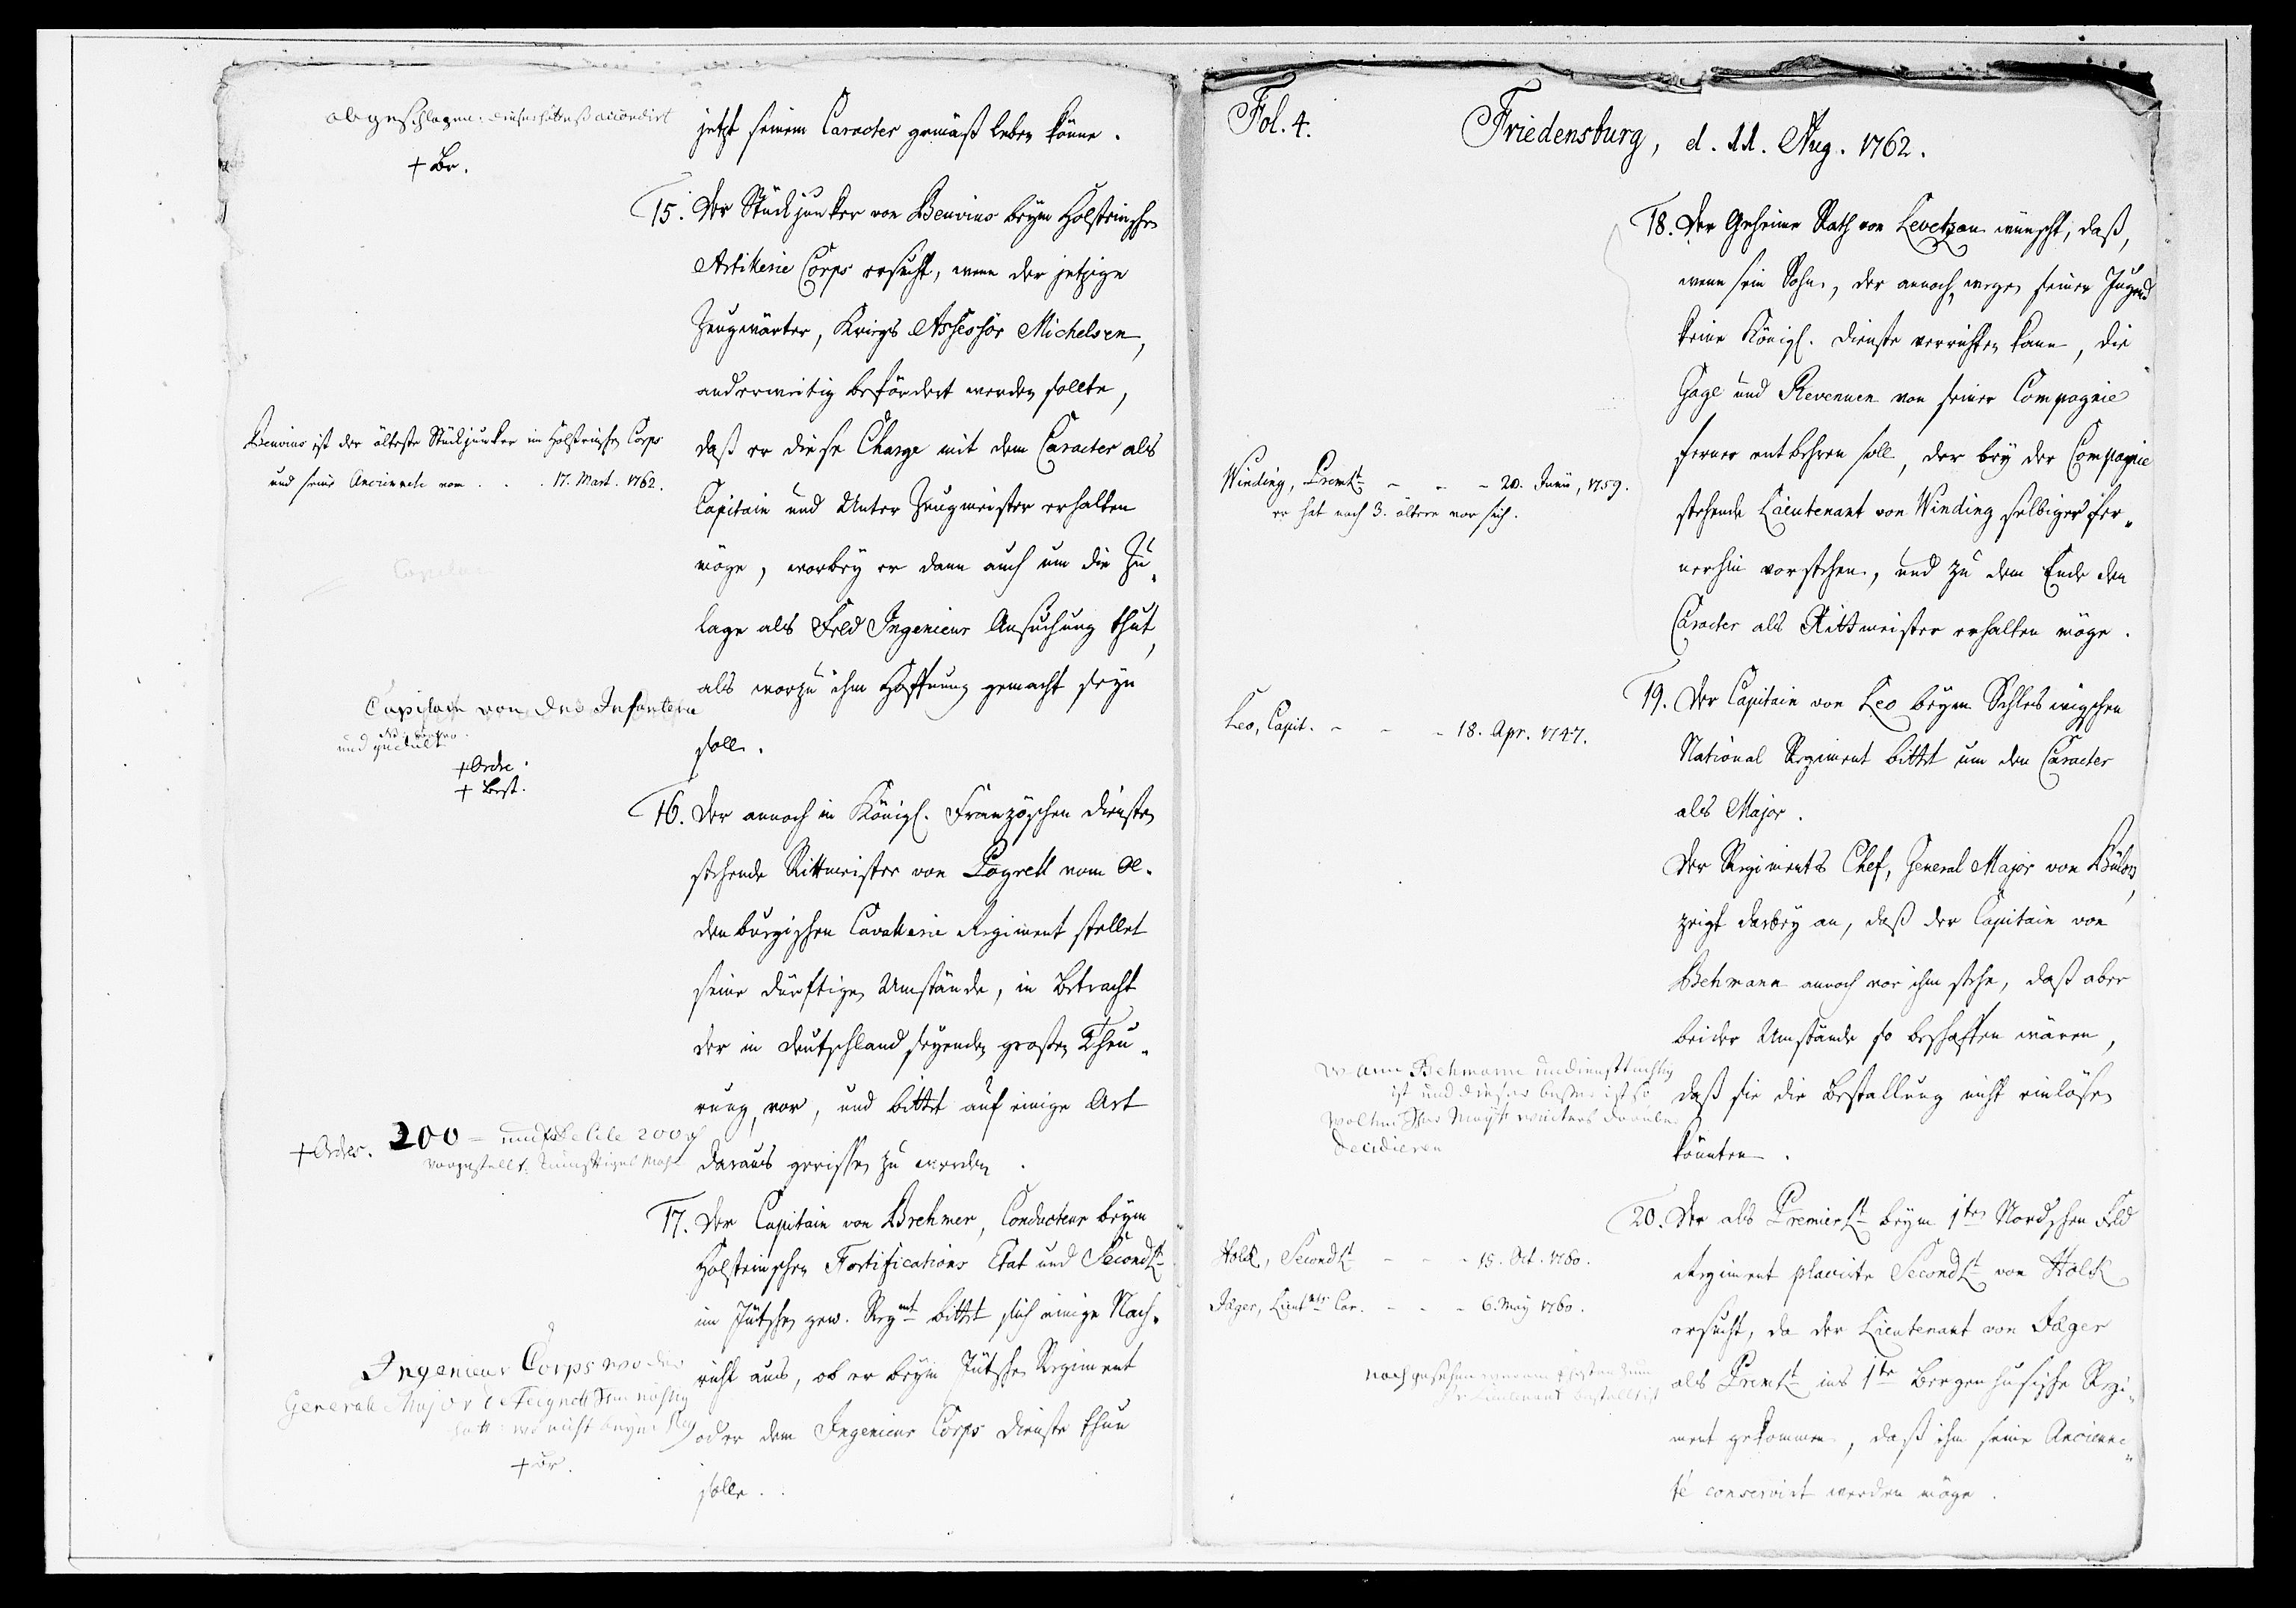 abgeschlagen: 
+ Br.
jetzt seinem Caracter gemäß leben könne.
15. Der Stückjunker von Benvius beym Holsteinschen
Artillerie Corps ersucht, wenn der jetzige
Zeugwärter, Kriegs Assessor Michelsen,
anderweitig befördert werden sollte,
daß er diese Charge mit dem Caracter als
Capitain und Unter Zeugmeister erhalten
möge, worbey er dann auch um die Zu„
lage als Feld Ingenieur Ansuchung thut,
als worzu ihm Hoffnung gemacht seyn
soll.
Benvius ist der älteste Stückjunker im Holsteinschen Corps
und seine Ancienneté vom . . . 17. Mart. 1762.
Capitain von der Infanterie
und
+ Ordre.
+ Best.
16. Der annoch in Königl. Französchen Diensten
stehende Rittmeister von Pogrell vom Ol„
denburgischen Cavallerie Regiment stellet
seine dürftigen Umstände, in Betracht
der in Deutschland seyenden großen Theu„
rung, vor, und bittet auf einige Art
daraus gerissen zu werden.
+ Ordre. 200 =
17. Der Capitain von Brehmer, Conducteur beym
Holsteinschen Fortifications Etat und Secondlt
im Jütschen gew. Regmt bittet sich einige Nach„
richt aus, ob er beym Jütschen Regiment
oder dem Ingenieur Corps Dienste thun
solle.
Ingenieur Corps wo der
General Major 
hatt: wo nicht beym Reg
+ Or.
Fol. 4.
Friedensburg, d. 11. Aug. 1762.
18. Der Geheime Rath von Levetzau wünscht, daß,
wenn sein Sohn, der annoch wegen seiner Jugend
keine Königl. Dienste verrichten kann, die
Gage und Revenuen von seiner Compagnie
ferner entbehren soll, der bey der Compagnie
stehende Lieutenant von Winding selbiger fer„
nerhin vorstehen, und zu dem Ende den
Caracter als Rittmeister erhalten möge.
Winding, Premlt - - - 20. Junii, 1759.
er hat noch 3. ältere vor sich.
19. Der Capitain von Leo beym Schleswigschen
National Regiment bittet um den Caracter
als Major.
Der Regiments Chef, General Major von Bülow,
zeigt darbey an, daß der Capitain von
Behmann annoch vor ihm stehe, daß aber
beider Umstände so beschaffen wären,
daß sie die Bestallung nicht einlösen
könnten.
Leo, Capit. - - - 18. Apr. 1747.
Wann Behmann undiensttüchtig
ist und dieser besser ist so
wolten Ihro Mayst weiters darüber
decidieren
20. Der als Premierlt beym 1ten Nordschen Feld
Regiment placirte Secondlt von Holck
ersucht, da der Lieutenant von Jæger
als Premlt ins 1te Bergenhusische Regi„
ment gekommen, daß ihm seine Ancienne„
té conservirt werden möge.
Holck, Secondlt - - - 15. Oct. 1760.
Jæger, Lieutnts Car. - - - 6. May 1760.
nachgesehen